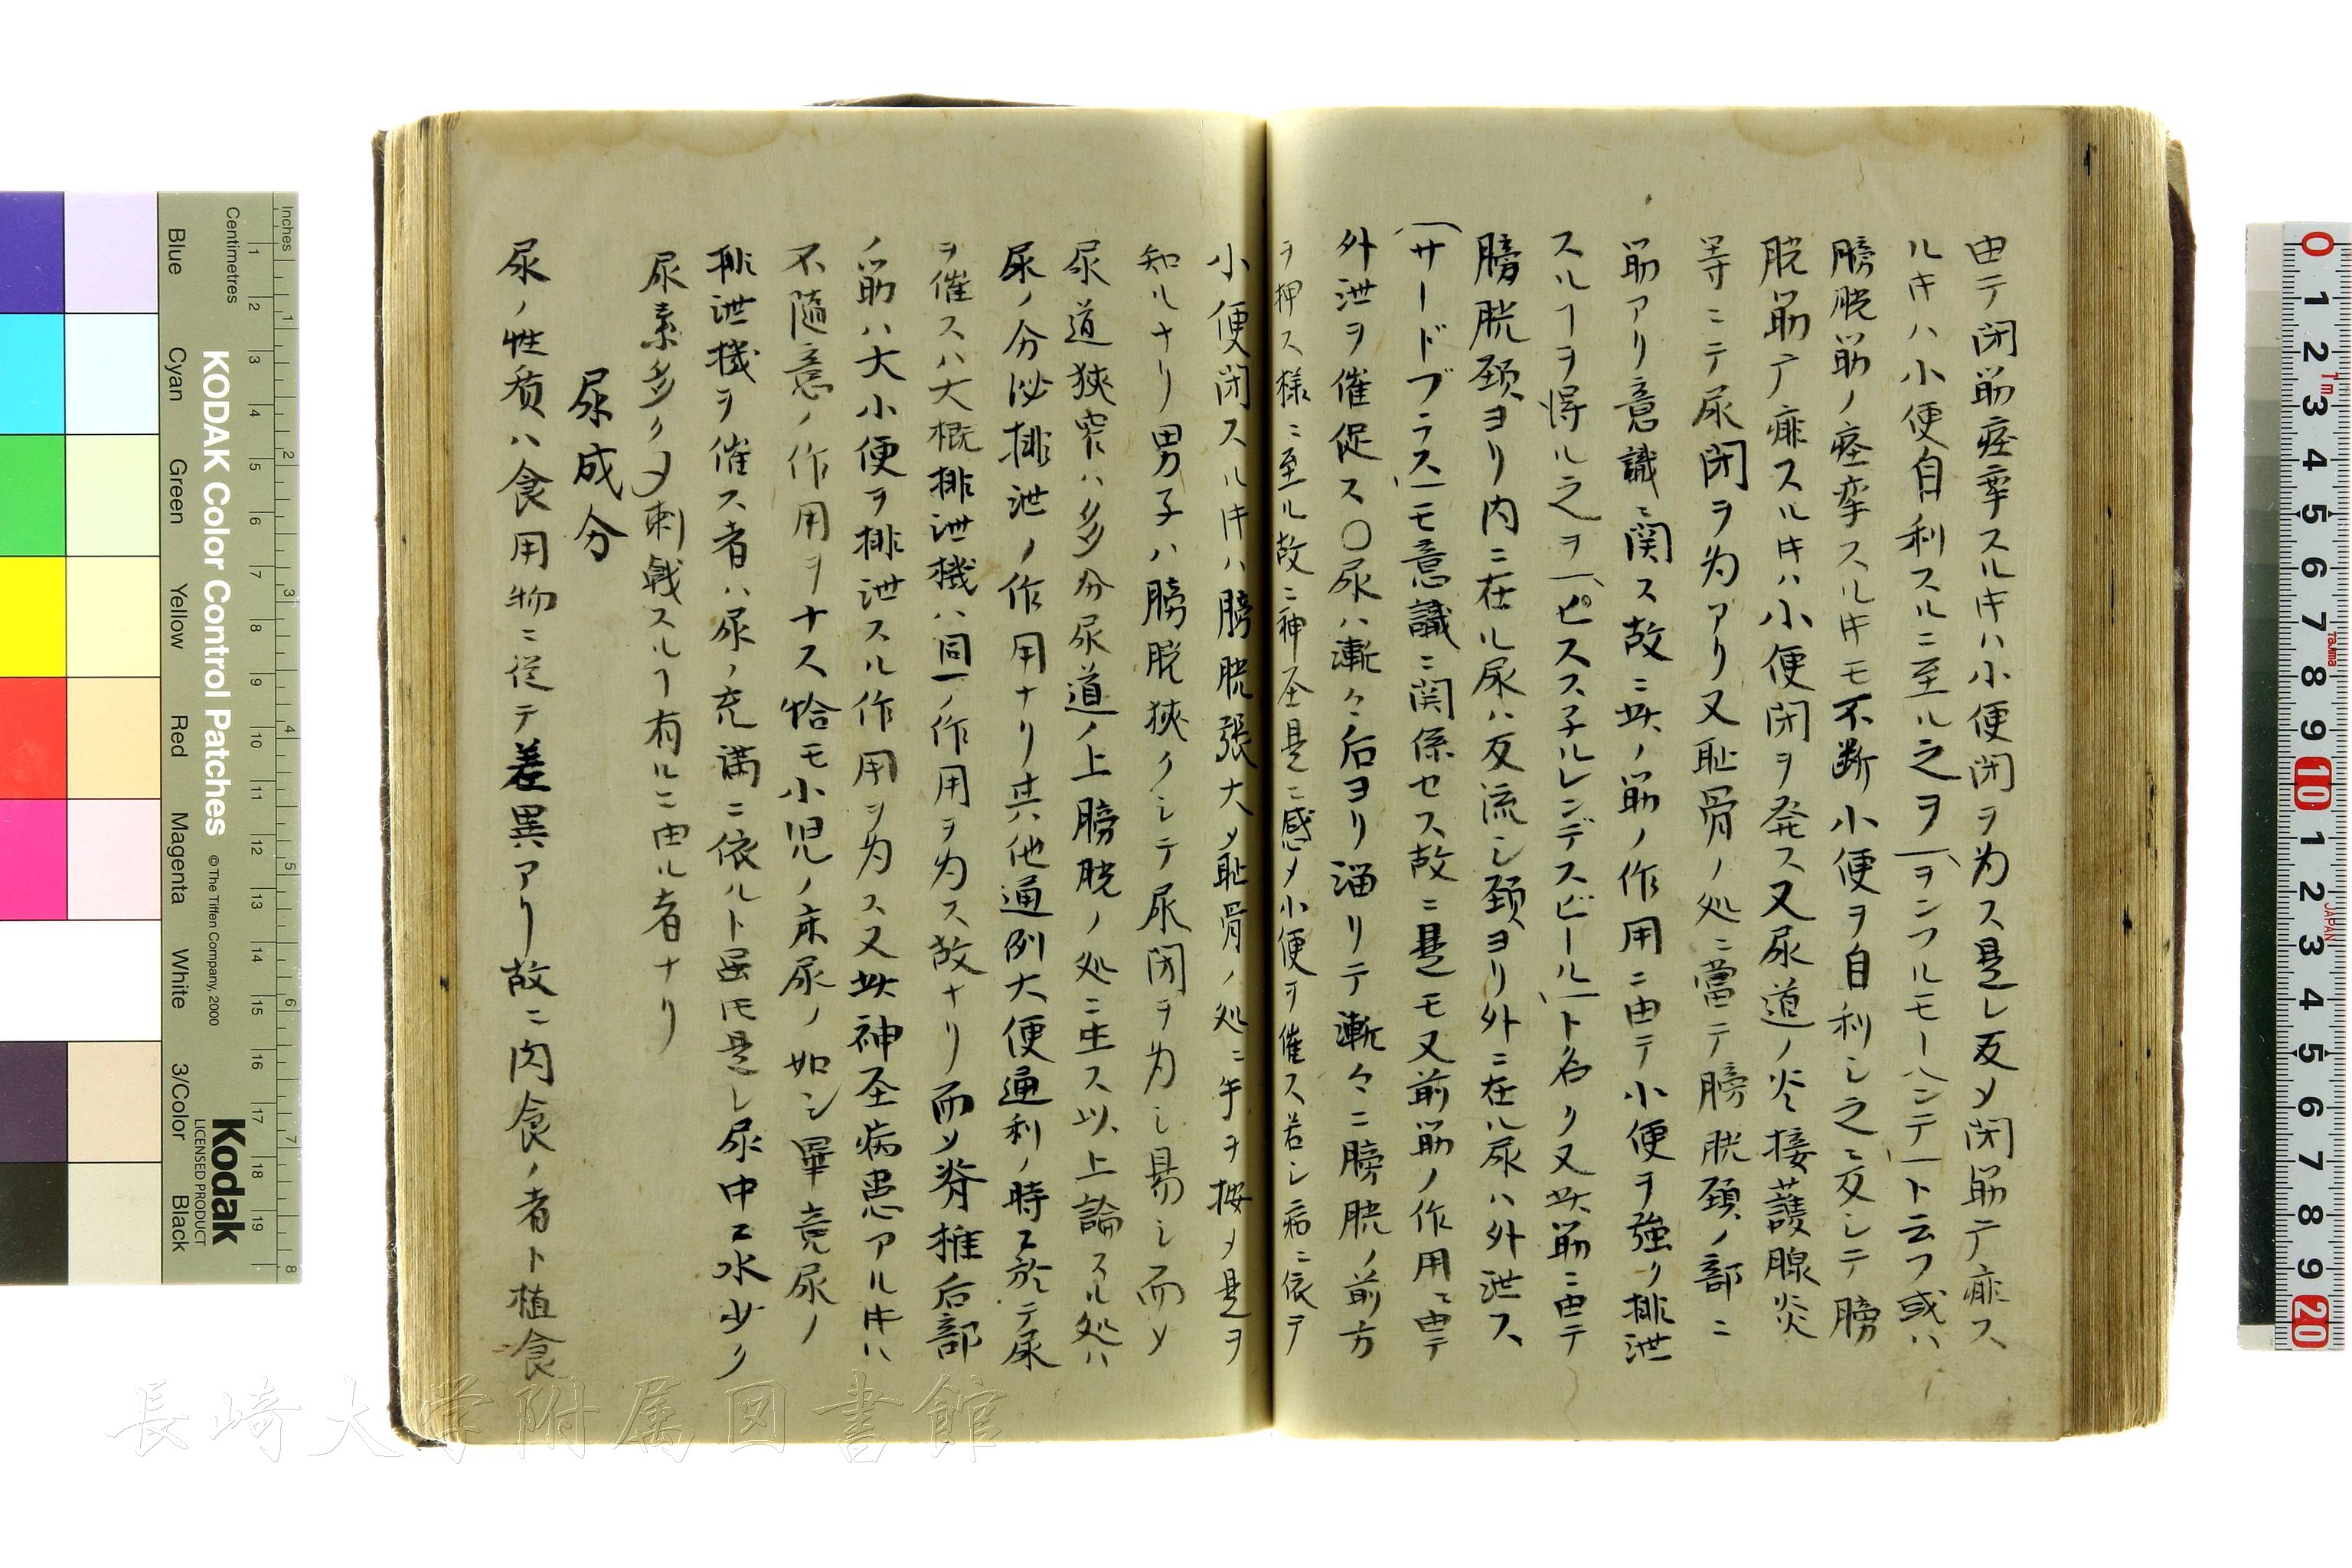 由テ閉筋痙挛スル𪜈ハ小便閉ヲ為ス是レ反〆閉筋テ痱ス
ル𪜈ハ小便自利スルニ至ル之ヲ「ヲンフルモーハンテ」ト云フ或ハ
膀胱筋ノ痙挛スル𪜈モ不断小便ヲ自利シ之ニ反シテ膀
胱筋テ痱スル𪜈ハ小便閉ヲ発ス又尿道ノ炎接護腺炎
等ニテ尿閉ヲ為アリ又耻骨ノ処ニ當テ膀胱頚ノ部ニ
筋アリ意識ニ関ス故ニ此ノ筋ノ作用ニ由テ小便ヲ強ク排泄
スルヿヲ得ル之ヲ「ピススチルレンデスピール」ト名ク又此筋ニ由テ
膀胱頚ヨリ内ニ在ル尿ハ反流シ頚ヨリ外ニ在ル尿ハ外泄ス
「サードブラス」モ意識ニ関係セス故ニ是モ又前筋ノ作用ニ由テ
外泄ヲ催促ス〇尿ハ漸々后ヨリ溜リテ漸々ニ膀胱ノ前方
ヲ押ス様ニ至ル故ニ神圣是ニ感〆小便ヲ催ス若シ病ニ依テ
小便閉スル𪜈ハ膀胱張大〆耻骨ノ処ニ手ヲ按〆是ヲ
知ルナリ男子ハ膀胱狭クシテ尿閉ヲ為シ易シ而〆
尿道狭窄ハ多分尿道ノ上膀胱ノ処ニ生ス以上論スル処ハ
尿ノ分泌排泄ノ作用ナリ其他通例大便通利ノ時ニ於テ尿
ヲ催スハ大概排泄機ハ同一ノ作用ヲ為ス故ナリ而〆脊椎后部
ノ筋ハ大小便ヲ排泄スル作用ヲ為ス又此神圣病患アル𪜈ハ
不随意ノ作用ヲナス恰モ小児ノ床尿ノ如シ畢竟尿ノ
排泄機ヲ催ス者ハ尿ノ充満ニ依ルト虽𪜈是レ尿中ニ水少ク
尿素多ク〆刺戟スルヿ有ルニ由ル者ナリ
尿成分
尿ノ性质ハ食用物ニ従テ差異アリ故ニ肉食ノ者ト植食
KODAK Color Control Patches
© The Tiffen Company, 2000
Kodak
LICENSED PRODUCT
Inches
Centimetres
Blue
Cyan
Green
Yellow
Red
Magenta
White
3/Color
Black
長崎大学附属図書館